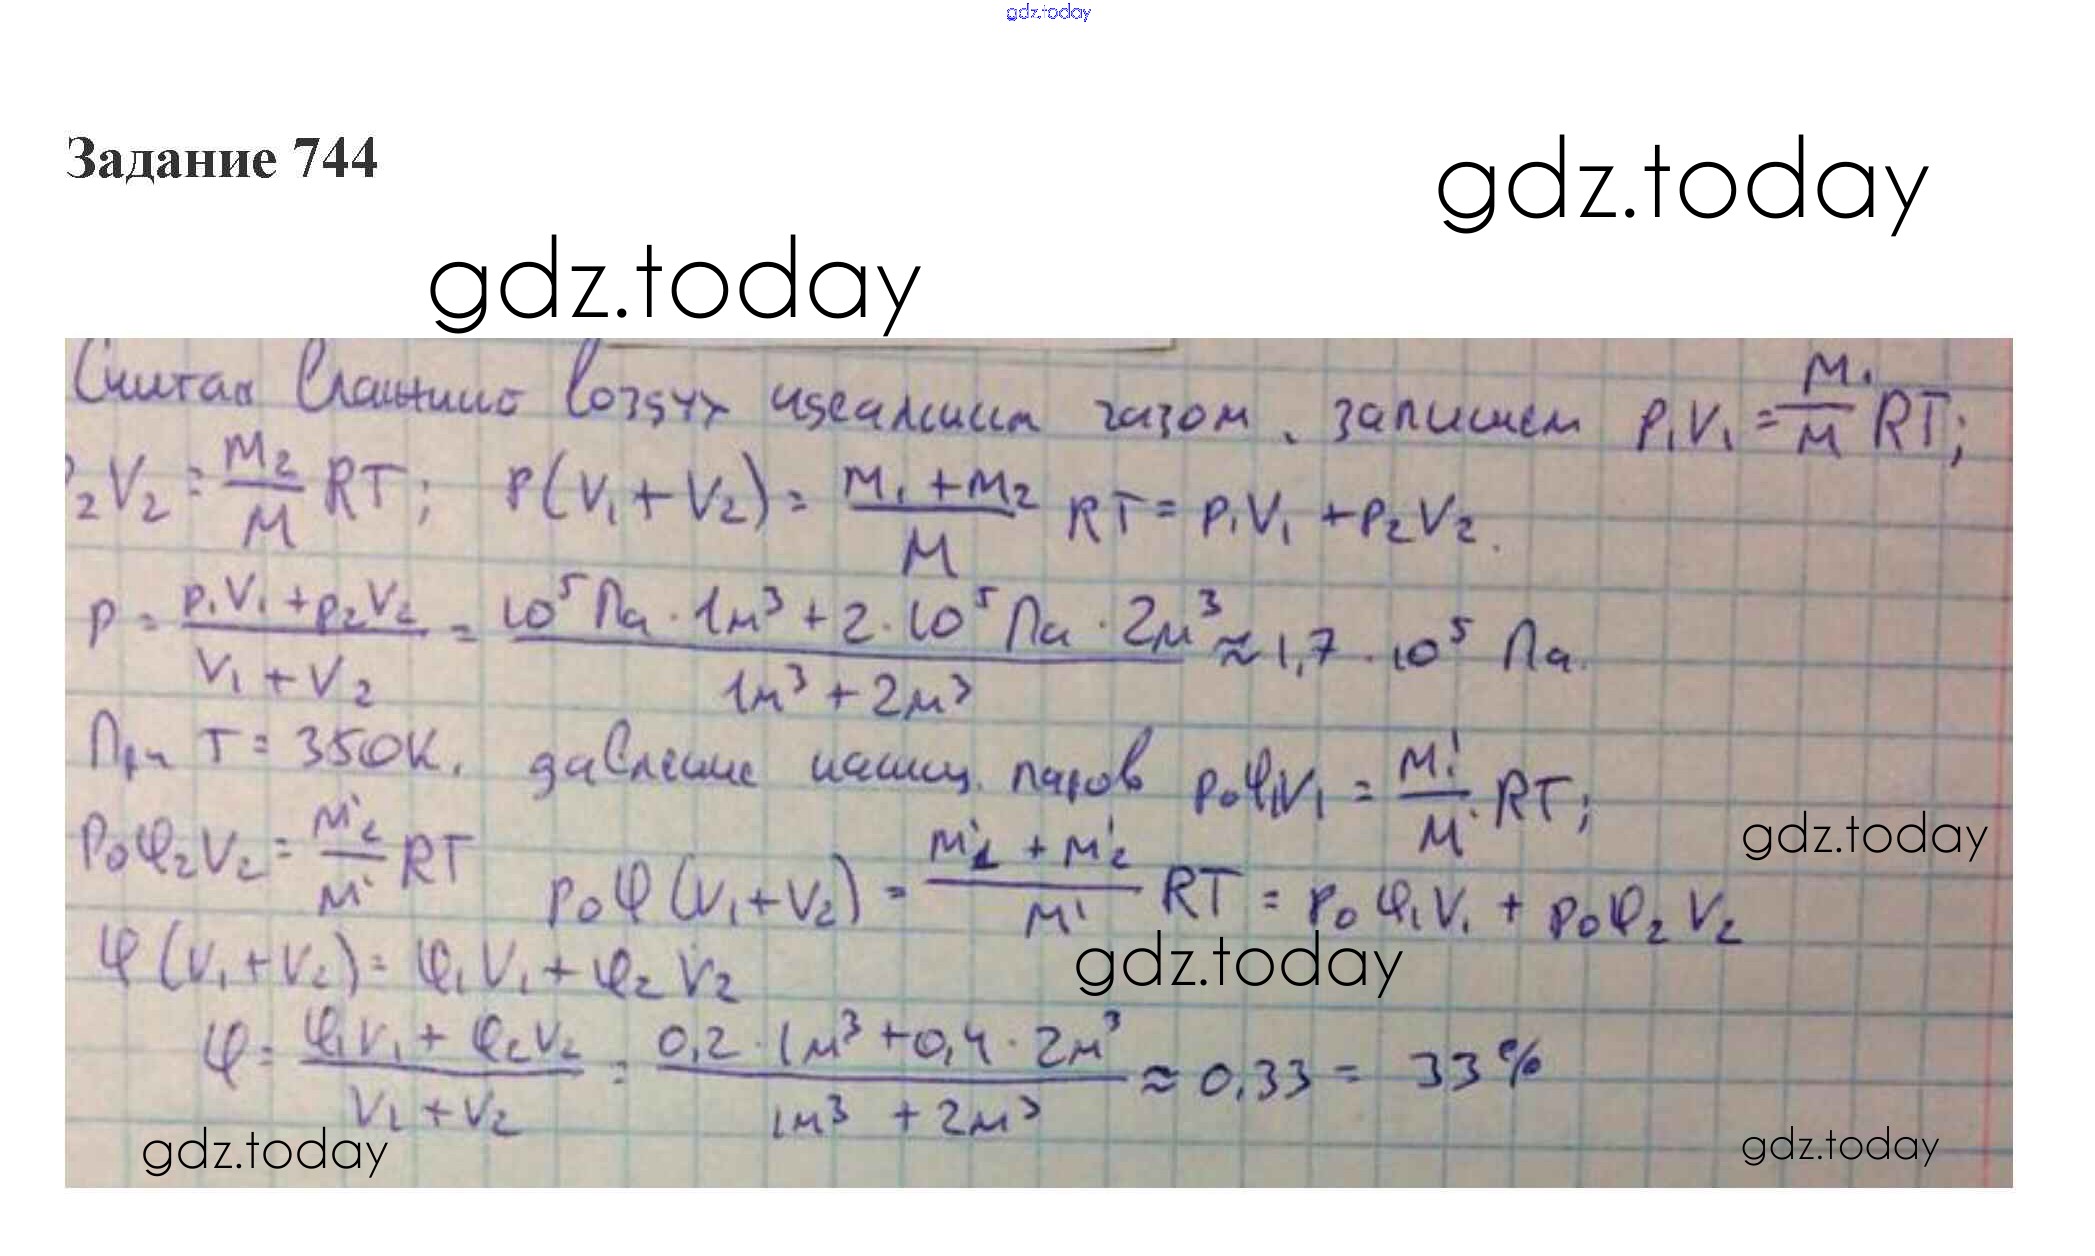 gdz.today
Задание 744
gdz.today
gdz.today
Считая влажный воздух идеальным газом, запишем p₁V₁ = m₁/M RT;
p₂V₂ = m₂/M RT; p(V₁ + V₂) = (m₁ + m₂)/M RT = p₁V₁ + p₂V₂.
p = (p₁V₁ + p₂V₂)/(V₁ + V₂) = (10⁵ Па · 1м³ + 2 · 10⁵ Па · 2м³)/(1м³ + 2м³) ≈ 1,7 · 10⁵ Па.
При T = 350К, давление насыщ. паров p₀φ₁V₁ = m₁'/M' RT;
gdz.today
p₀φ₂V₂ = m'₂/M' RT p₀φ(V₁ + V₂) = (m'₁ + m'₂)/M' RT = p₀φ₁V₁ + p₀φ₂V₂
φ(V₁ + V₂) = φ₁V₁ + φ₂V₂
gdz.today
φ = (φ₁V₁ + φ₂V₂)/(V₁ + V₂) = (0,2 · 1м³ + 0,4 · 2м³)/(1м³ + 2м³) ≈ 0,33 = 33%
gdz.today
gdz.today